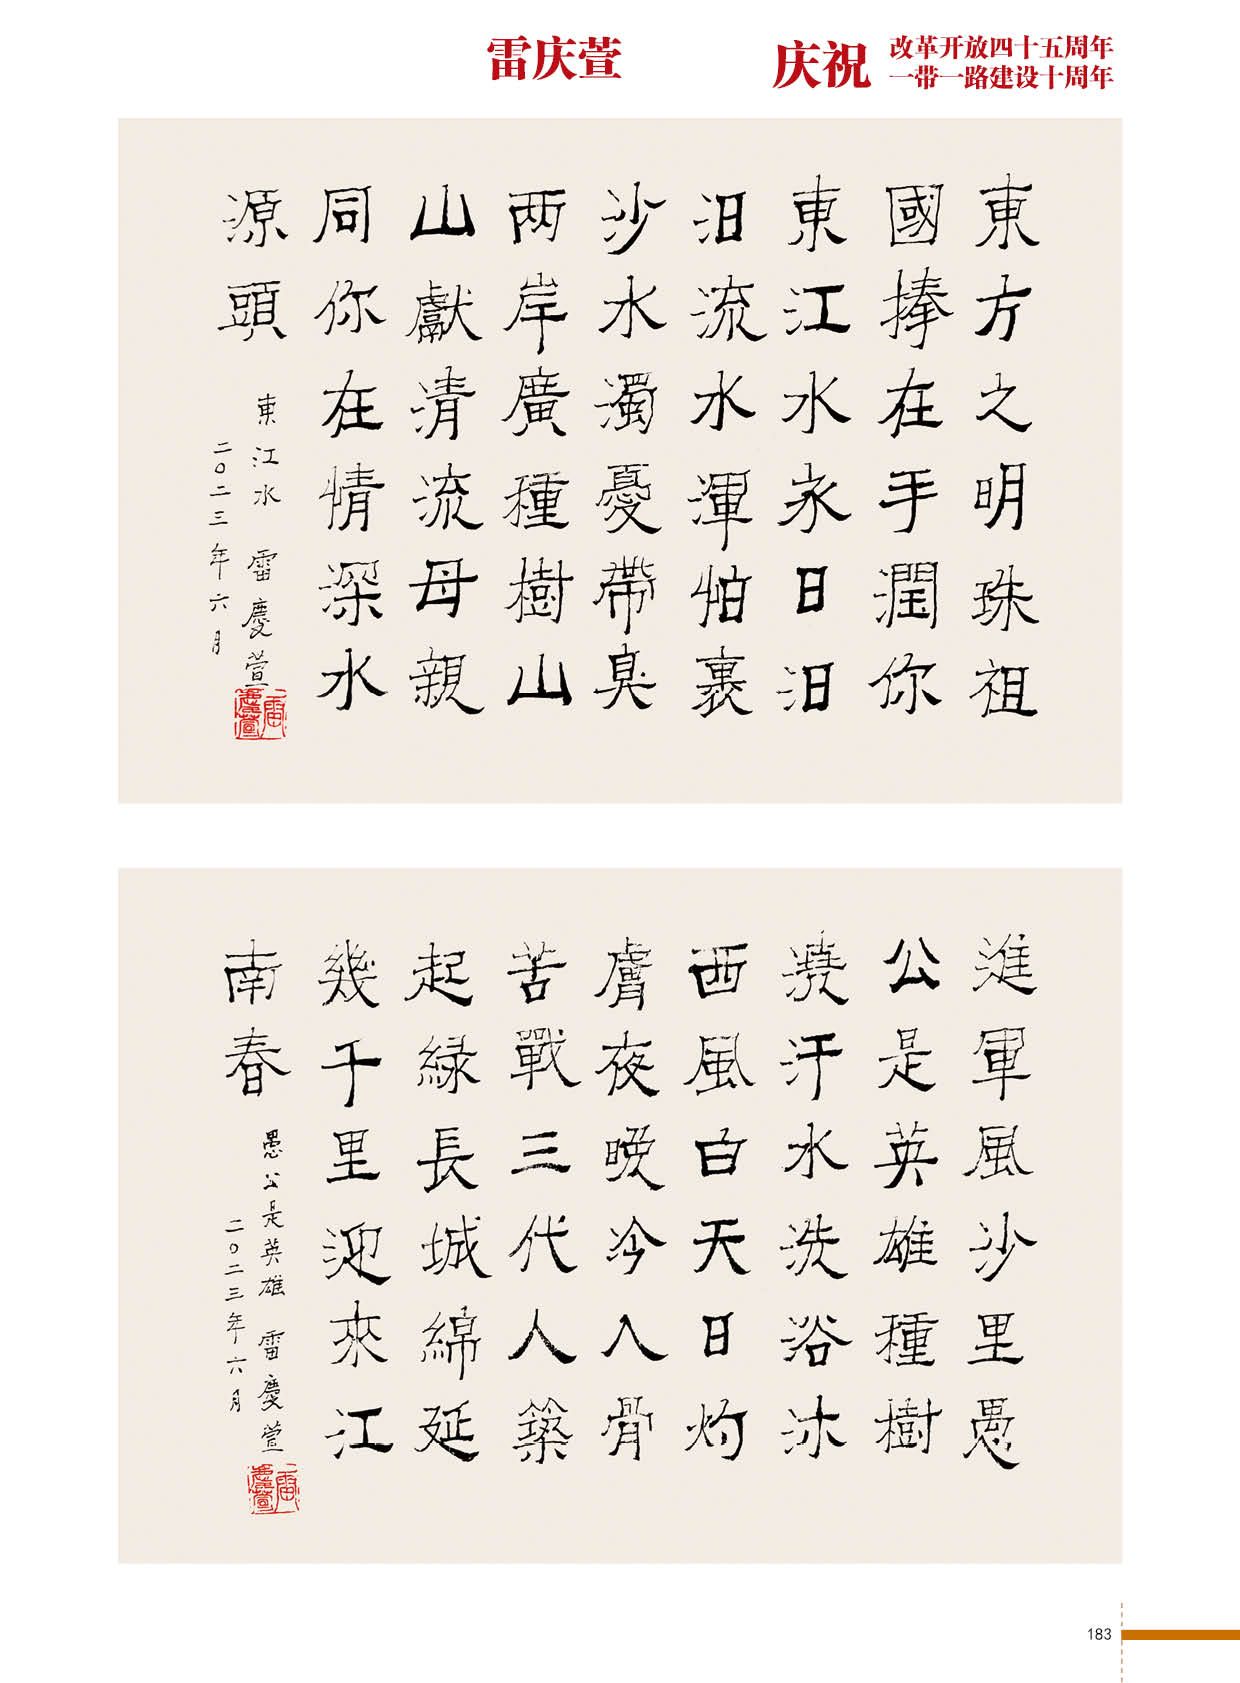 雷庆萱
庆祝
改革开放四十五周年
一带一路建设十周年
東方之明珠祖
國捧在手潤你
東江水永日汨
汨流水渾怕裹
沙水濁憂帶臭
两岸廣種樹山
山獻清流母親
同你在情深水
源頭
東江水 雷慶萱
二〇二三年六月
雷慶萱
進軍風沙里愚
公是英雄種樹
澆汗水洗浴沐
西風白天日灼
膚夜晚冷入骨
苦戰三代人築
起緑長城綿延
幾千里迎來江
南春
愚公是英雄 雷慶萱
二〇二三年六月
雷慶萱
183